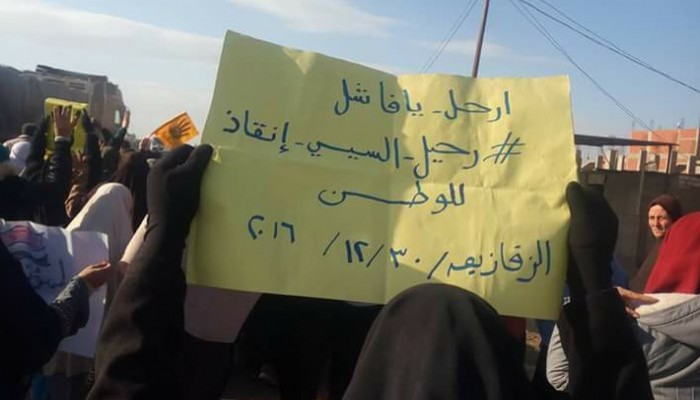 ارحل - يافاشل
#رحيل-السيسي-إنقاذ
للوطن
الزقازيق/٣٠/١٢/٢٠١٦